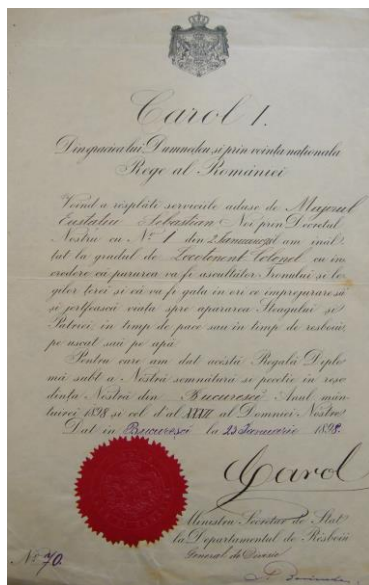 Carol I.
Din gracia lui Dumnedeu si prin vointa nationala
Rege al României
Voind a resplăti serviciile aduse de Majorul
Eustatiu Sebastian Noi prin Decretul
Nostru cu Nº 1 din 2 Ianuariu am inăl-
tat la gradul de Locotenent Colonel cu in
credere că pururea va fi ascultător Tronului si le
gilor terei si că va fi gata in ori ce impregiurare să
si jertfească viata spre apararea Steagului si
Patriei, in timp de pace sau in timp de resboiu
pe uscat sau pe apă.
Pentru care am dat acéstă Regală Diplo
mă subt a Nostră semnătură si pecetie in rese
dinta Nostră din Bucuresci Anul mân
tuirei 1898 si cel d'al XXXII al Domniei Nostre
Dat in Bucuresci la 23 Ianuarie 1898.
Carol
Ministru Secretar de Stat
la Departamentul de Résboiu
General de Divisie
Nº 70.